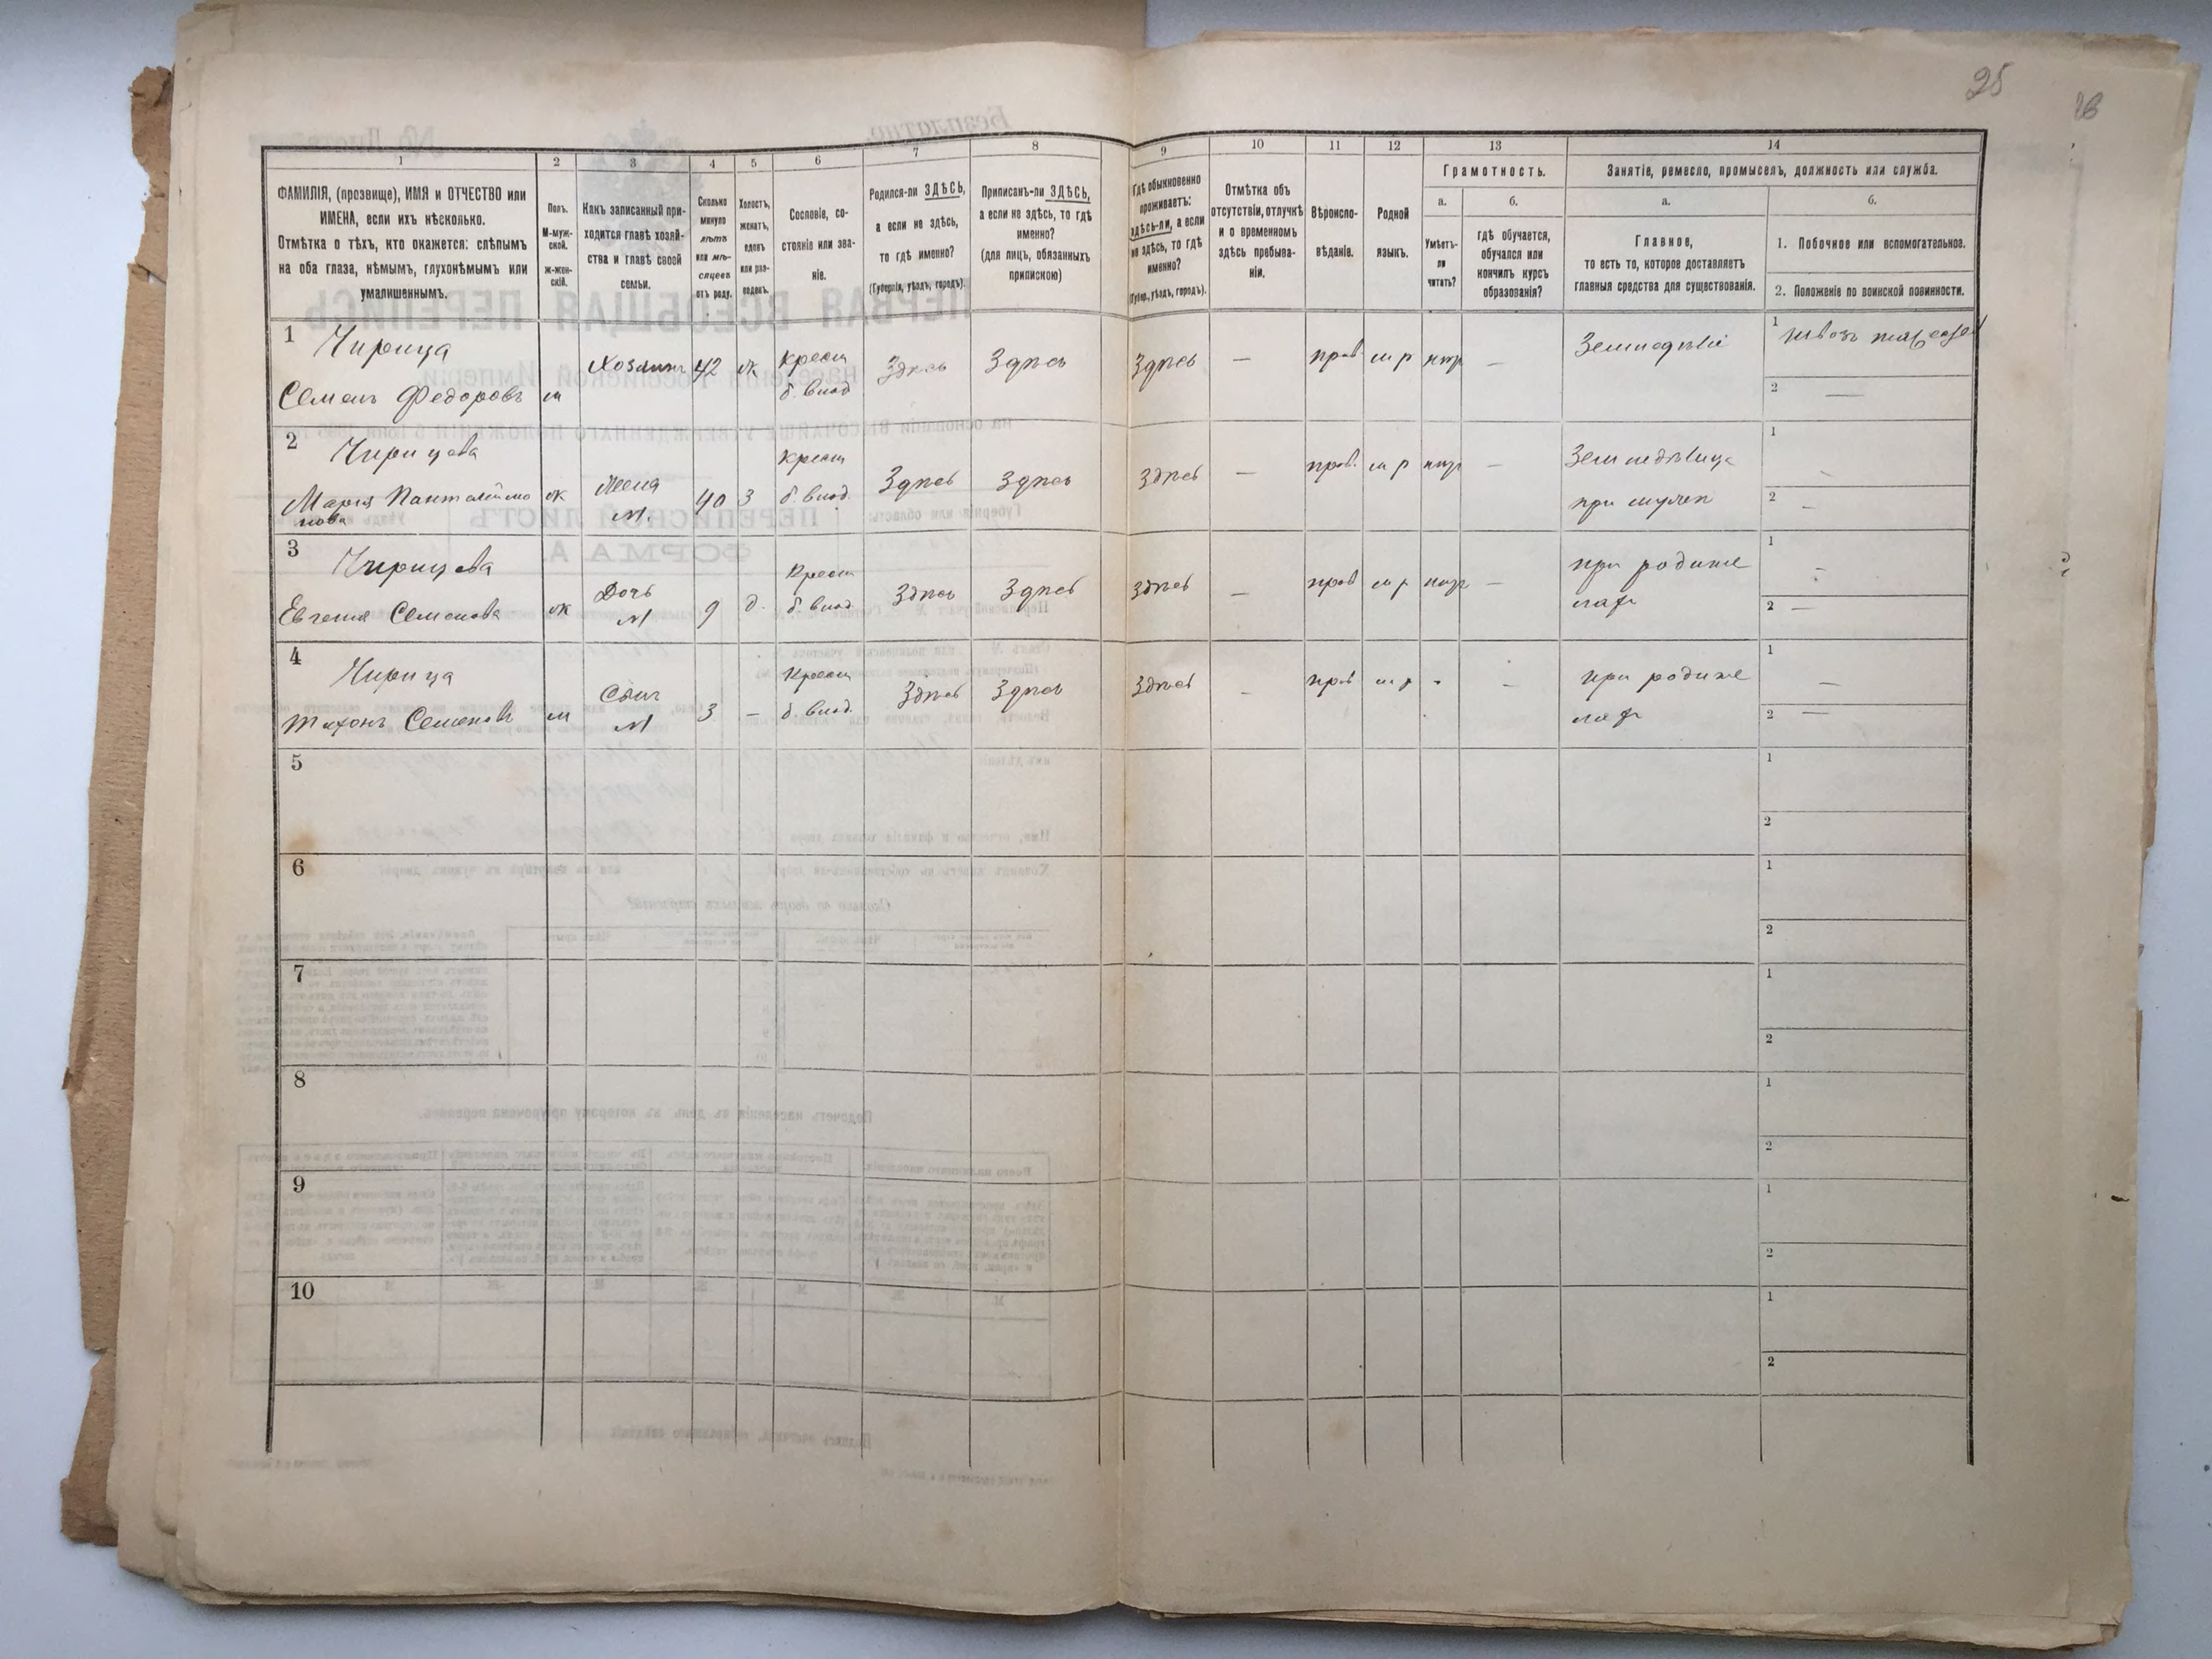 25
1
2
3
4
5
6
7
8
9
10
11
12
13
14
ФАМИЛІЯ, (прозвище), ИМЯ и ОТЧЕСТВО или
ИМЕНА, если ихъ нѣсколько.
Отмѣтка о тѣхъ, кто окажется: слѣпымъ
на оба глаза, нѣмымъ, глухонѣмымъ или
умалишеннымъ.
Полъ.
М-муж-
ской.
Ж-жен-
скій.
Какъ записанный при-
ходится главѣ хозяй-
ства и главѣ своей
семьи.
Сколько
минуло
лѣтъ
или мѣ-
сяцевъ
отъ роду.
Холостъ,
женатъ,
вдовъ
или раз-
веденъ.
Сословіе, со-
стояніе или зва-
ніе.
Родился-ли ЗДѢСЬ,
а если не здѣсь,
то гдѣ именно?
(Губернія, уѣздъ, городъ).
Приписанъ-ли ЗДѢСЬ,
а если не здѣсь, то гдѣ
именно?
(для лицъ, обязанныхъ
припискою)
Гдѣ обыкновенно
проживаетъ:
здѣсь-ли, а если
не здѣсь, то гдѣ
именно?
(Губер., уѣздъ, городъ).
Отмѣтка объ
отсутствіи, отлучкѣ
и о временномъ
здѣсь пребыва-
ніи.
Вѣроиспо-
вѣданіе.
Родной
языкъ.
Грамотность.
а.
Умѣетъ-
ли
читать?
б.
гдѣ обучается,
обучался или
кончилъ курсъ
образованія?
Занятіе, ремесло, промыселъ, должность или служба.
а.
Главное,
то есть то, которое доставляетъ
главныя средства для существованія.
б.
1. Побочное или вспомогательное.
2. Положеніе по воинской повинности.
1 Чирица
Семенъ Федоровъ
м
Хозяинъ
42
ж
крест
б. влад
Здѣсь
Здѣсь
Здѣсь
—
прав
м р
нгр
—
Земледѣліе
1
2 —
2 Чирицова
Мария Пантелеймо
нова
ж
Жена
М.
40
З
крест
б. влад.
Здѣсь
Здѣсь
Здѣсь
—
прав.
м р
нгр
—
Земледѣлица
при мужеп
1
2 —
3 Чирицова
Евгения Семенова
ж
Дочь
М
9
д.
Крест
б. влад
Здѣсь
Здѣсь
Здѣсь
—
прав
м р
нгр
—
при родите
лях
1 -
2 —
4 Чирица
Тихонъ Семеновъ
м
Сынъ
М
3
—
Крест
б. влад.
Здѣсь
Здѣсь
Здѣсь
—
прав
м р
-
-
при родите
лях
1 —
2 —
5
1
2
6
1
2
7
1
2
8
1
2
9
1
2
10
1
2